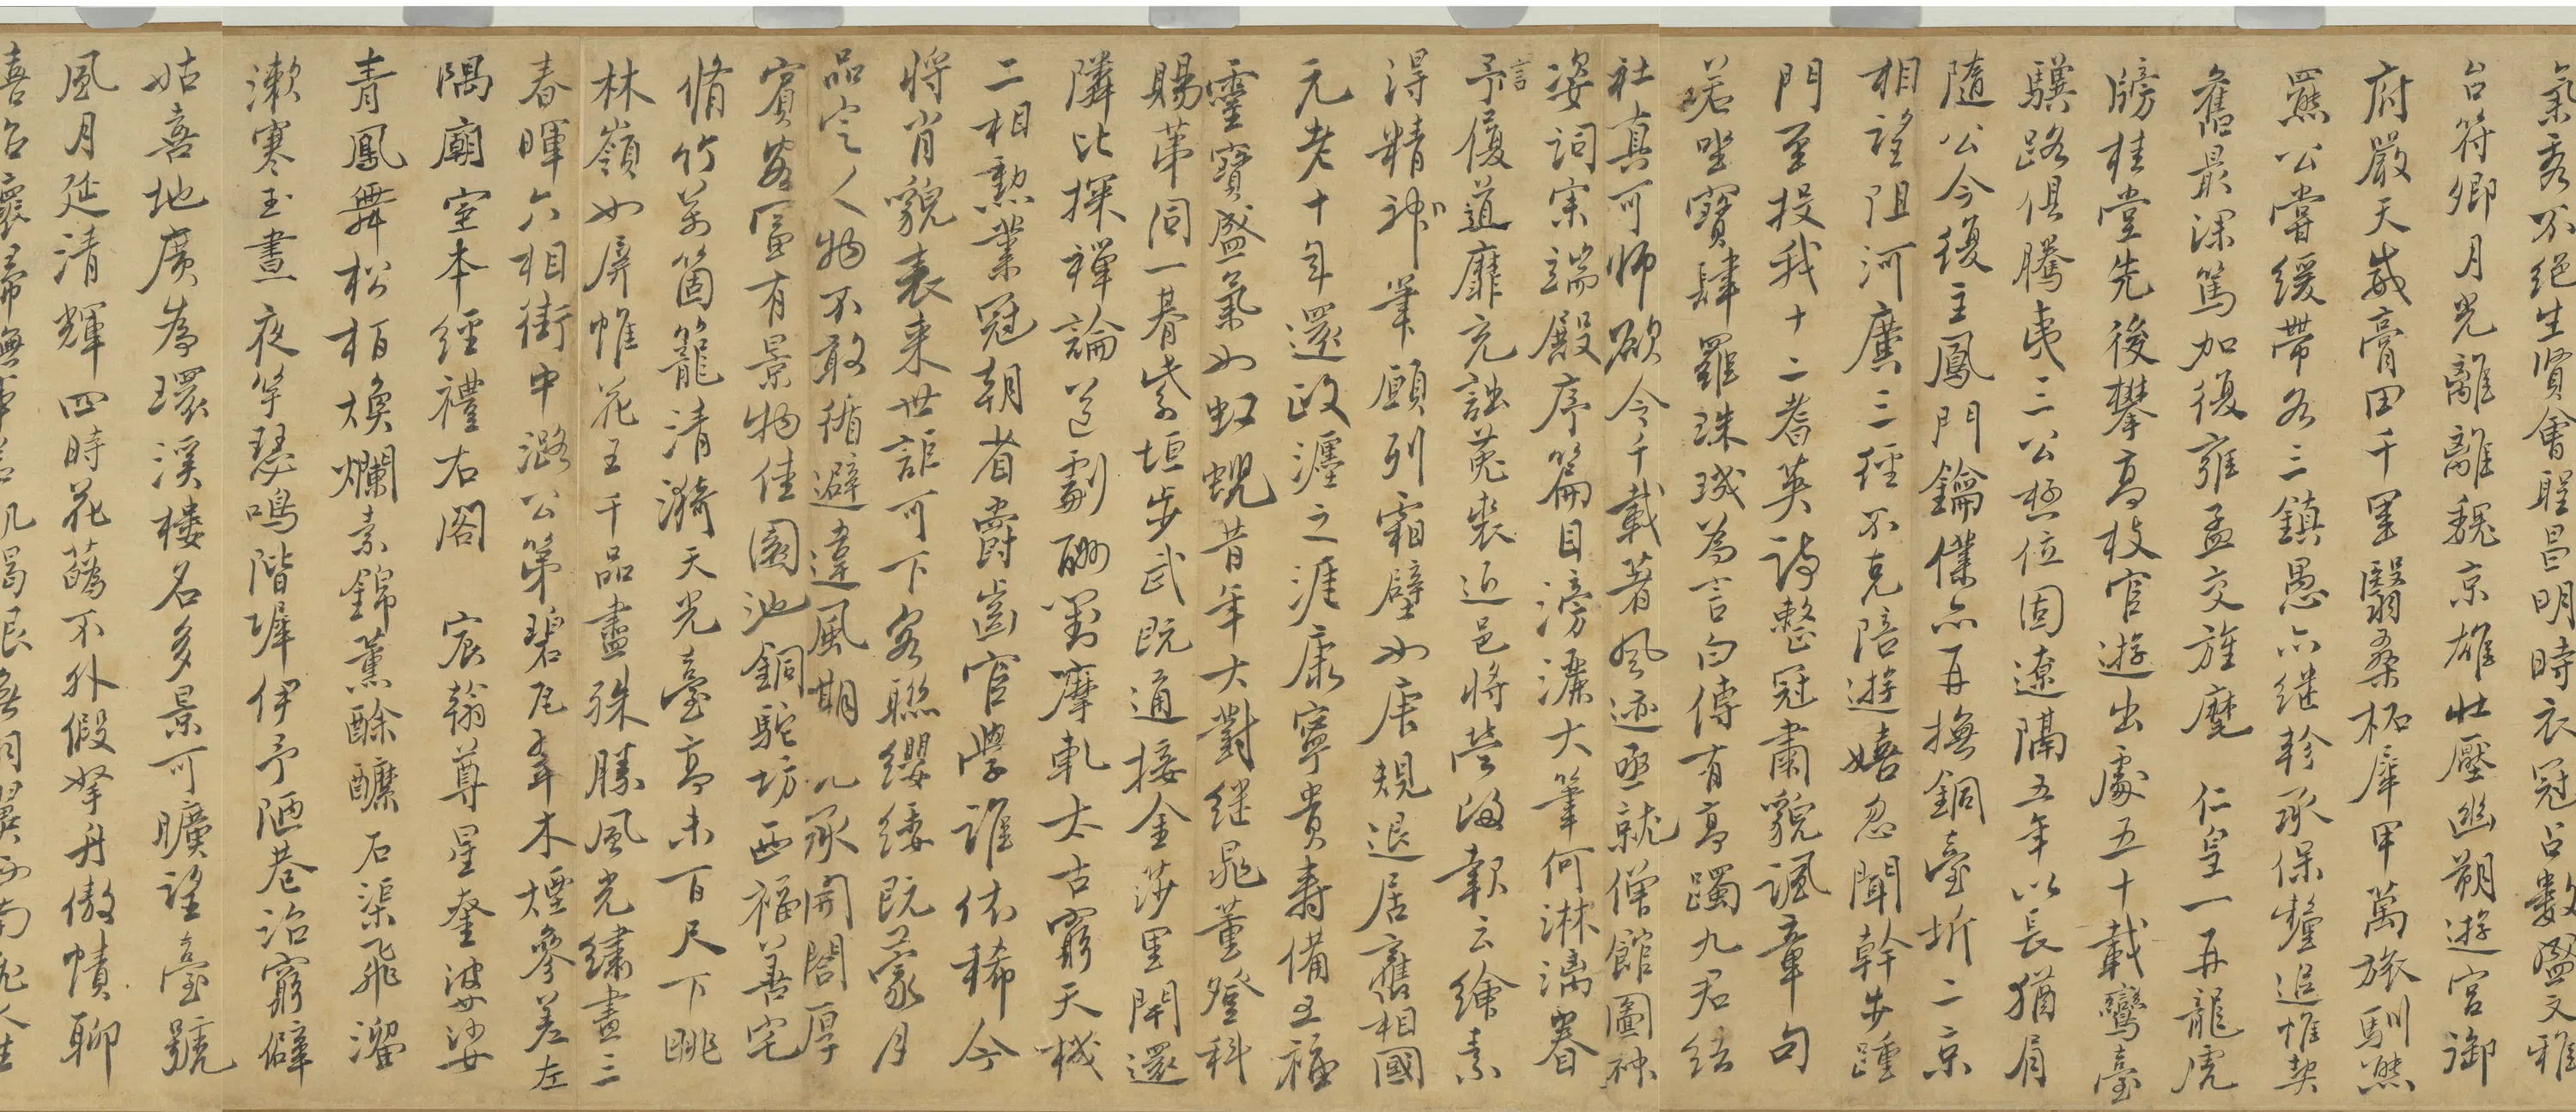 氣秀不絕生賢會逢昌明時衣冠占數盈文雅
台符卿月光離離魏京雄壯壓幽朔遊宮御
府嚴天威膏田千里翳桑柘犀甲萬旅馴熊
羆公當緩帶名三鎮愚亦繼軫承保釐追惟契
舊最深篤加復雍孟交旌麾 仁皇一再龍虎
牓桂堂先後攀高枝官遊出處五十載鸞臺
驥路俱騰夷三公極位固遼隔五年以長猶肩
隨公今復主鳳門鑰僕亦再撫銅臺圻二京
相望阻河廣三徑不克陪遊嬉忽聞幹步踵
門至投我十二耆英詩整冠肅貌諷章句
若坐寶肆羅珠璣為言白傅有高躅九君結
社真可師欲令千載著風迹亟就僧館圖神
姿詞宗端殿序篇目滂灑大筆何淋漓眷
言予復道靡充詘菟裘近邑將營
得精神筆願列霜壁如唐規退居舊相國
元老十年還政瀍之涯康寧貴壽備五福
靈寶盛氣如虹蜺昔年大對繼晁董登科
賜第同一朞紫垣步武既通接金莎里閈還
隣比探禪論道劇酬對摩軋太古窮天機
二相勳業冠朝省爵齒官學誰依稀今
將肖貌表來世詎可下客聯纓緌既蒙月
品定人物不敢循避違風期 八承開閤厚
賓客富有景物佳園池銅駝坊西福善宅
脩竹萬箇籠清漪天光臺高未百尺下眺
林嶺如屏帷花王千品盡殊勝風光繡畫三
春暉六相街中潞公第碧瓦聳木煙參差左
隅廟室本經禮右閣 宸翰尊星奎婆娑
青鳳舞松栢煥爛素錦薰酴醾石渠飛溜
漱寒玉晝夜竽瑟鳴階墀伊予陋巷治窮僻
姑喜地廣為環溪樓名多景可曠望臺號
風月延清輝四時花蘤不外假拏舟傲幘聊